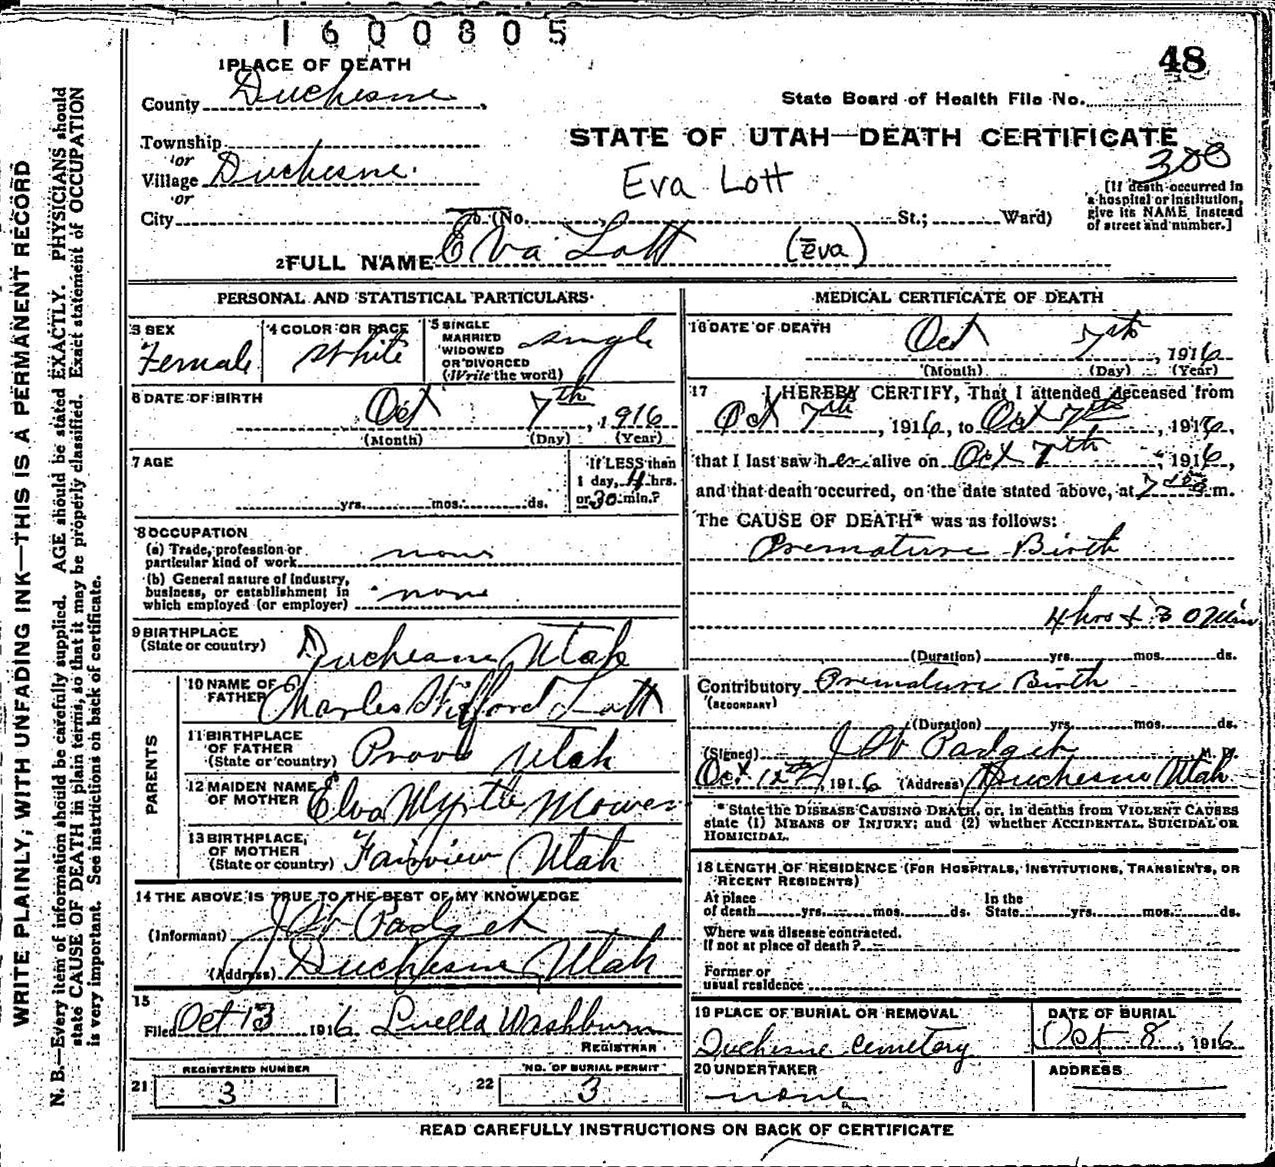 1600805
48
1 PLACE OF DEATH
County Duchesne
State Board of Health File No.
Township
or
Village Duchesne
or
City
STATE OF UTAH—DEATH CERTIFICATE
308
Eva Lott
[If death occurred in
a hospital or institution,
give its NAME instead
of street and number.]
(No. St.; Ward)
2 FULL NAME Eva Lott (Eva)
PERSONAL AND STATISTICAL PARTICULARS
3 SEX Female
4 COLOR OR RACE White
5 SINGLE
MARRIED
WIDOWED
OR DIVORCED
(Write the word) single
6 DATE OF BIRTH
Oct 7th, 1916
(Month) (Day) (Year)
7 AGE
yrs. mos. ds.
If LESS than
1 day, 4 hrs.
or 30 min.?
8 OCCUPATION
(a) Trade, profession or
particular kind of work none
(b) General nature of industry,
business, or establishment in
which employed (or employer) none
9 BIRTHPLACE
(State or country) Duchesne Utah
PARENTS
10 NAME OF
FATHER Charles Lott
11 BIRTHPLACE
OF FATHER
(State or country) Provo Utah
12 MAIDEN NAME
OF MOTHER Elva Myrtle Mower
13 BIRTHPLACE
OF MOTHER
(State or country) Fairview Utah
14 THE ABOVE IS TRUE TO THE BEST OF MY KNOWLEDGE
(Informant) J W Padgett
(Address) Duchesne Utah
15
Filed Oct 13 1916 Luella Washburn
REGISTRAR
21 REGISTERED NUMBER
3
22 NO. OF BURIAL PERMIT
3
MEDICAL CERTIFICATE OF DEATH
16 DATE OF DEATH
Oct 7th, 1916
(Month) (Day) (Year)
17 I HEREBY CERTIFY, That I attended deceased from
Oct 7th, 1916, to Oct 7th, 1916,
that I last saw her alive on Oct 7th, 1916,
and that death occurred, on the date stated above, at m.
The CAUSE OF DEATH* was as follows:
Premature Birth
4 hrs & 30 Min
(Duration) yrs. mos. ds.
Contributory Premature Birth
(SECONDARY)
(Duration) yrs. mos. ds.
(Signed) J W Padgett M. D.
Oct 12th, 1916 (Address) Duchesne Utah
* State the DISEASE CAUSING DEATH, or, in deaths from VIOLENT CAUSES
state (1) MEANS OF INJURY; and (2) whether ACCIDENTAL, SUICIDAL OR
HOMICIDAL.
18 LENGTH OF RESIDENCE (FOR HOSPITALS, INSTITUTIONS, TRANSIENTS, OR
RECENT RESIDENTS)
At place
of death yrs. mos. ds.
In the
State yrs. mos. ds.
Where was disease contracted,
If not at place of death?
Former or
usual residence
19 PLACE OF BURIAL OR REMOVAL
Duchesne Cemetery
DATE OF BURIAL
Oct 8, 1916
20 UNDERTAKER
none
ADDRESS
READ CAREFULLY INSTRUCTIONS ON BACK OF CERTIFICATE
WRITE PLAINLY, WITH UNFADING INK—THIS IS A PERMANENT RECORD
N. B.—Every item of information should be carefully supplied. AGE should be stated EXACTLY. PHYSICIANS should
state CAUSE OF DEATH in plain terms, so that it may be properly classified. Exact statement of OCCUPATION
is very important. See instructions on back of certificate.